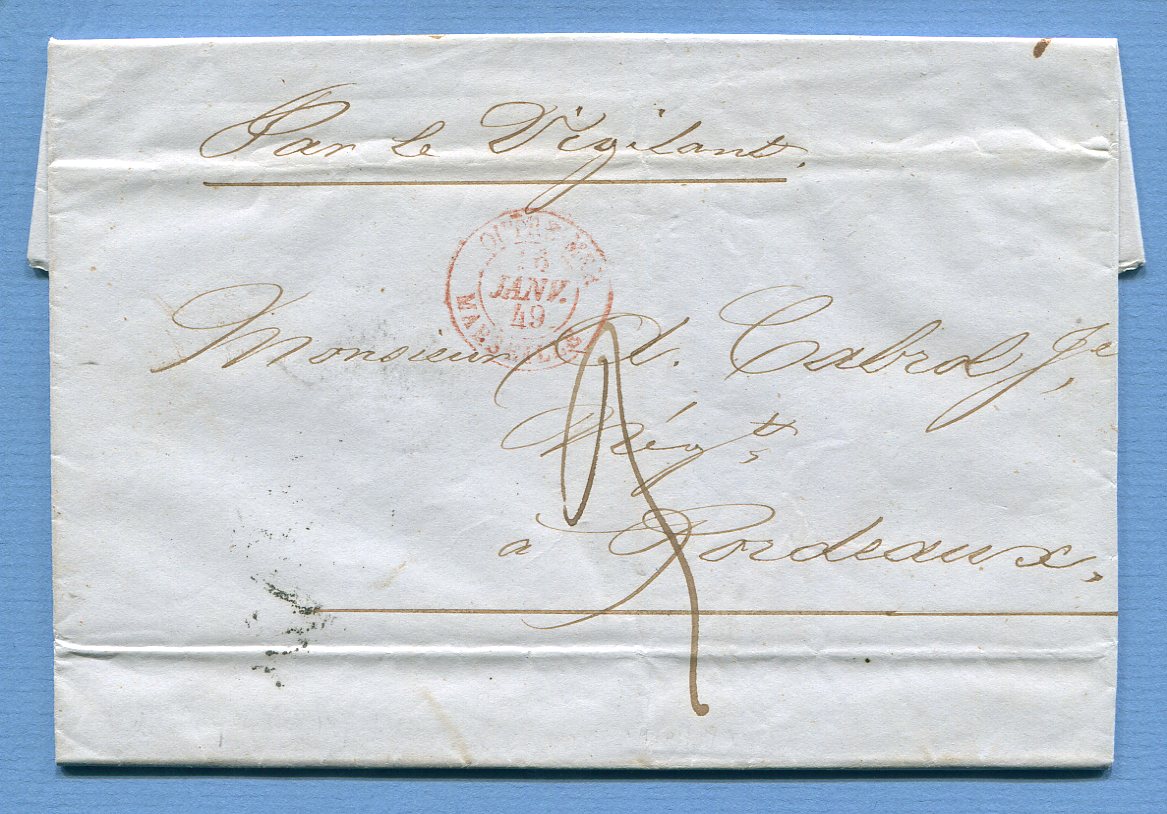 Par le Vigilant.
OUTRE MER
16
JANV.
49
MARSEILLE
Monsieur Cabrol Je,
Négt,
a Bordeaux,